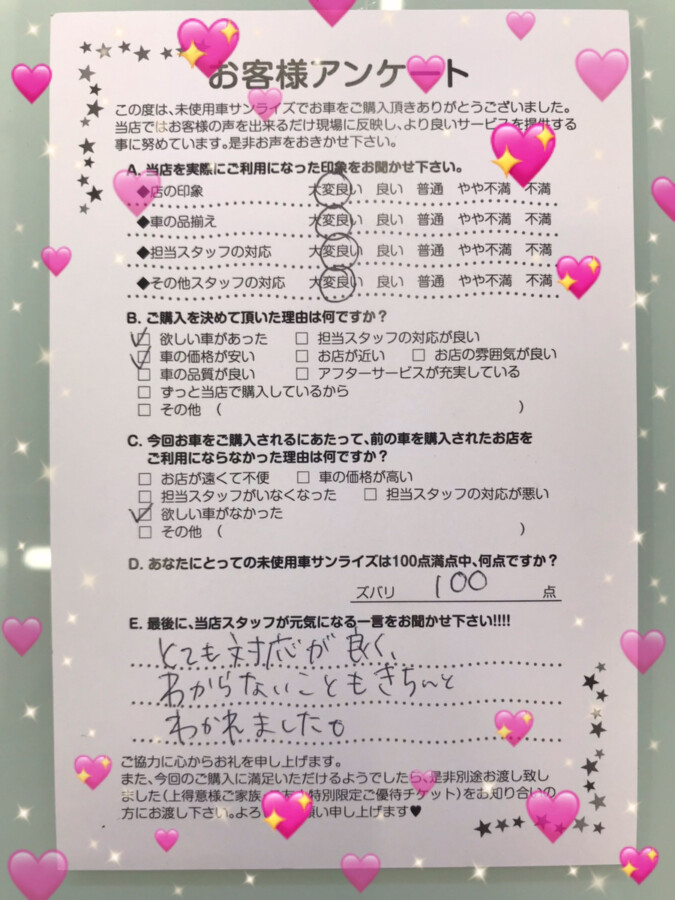 お客様アンケート
この度は、未使用車サンライズでお車をご購入頂きありがとうございました。
当店ではお客様の声を出来るだけ現場に反映し、より良いサービスを提供する
事に努めています。是非お声をおきかせ下さい。
A. 当店を実際にご利用になった印象をお聞かせ下さい。
◆店の印象 大変良い 良い 普通 やや不満 不満
◆車の品揃え 大変良い 良い 普通 やや不満 不満
◆担当スタッフの対応 大変良い 良い 普通 やや不満 不満
◆その他スタッフの対応 大変良い 良い 普通 やや不満 不満
B. ご購入を決めて頂いた理由は何ですか？
☑ 欲しい車があった □ 担当スタッフの対応が良い
☑ 車の価格が安い □ お店が近い □ お店の雰囲気が良い
□ 車の品質が良い □ アフターサービスが充実している
□ ずっと当店で購入しているから
□ その他 （ ）
C. 今回お車をご購入されるにあたって、前の車を購入されたお店を
ご利用にならなかった理由は何ですか？
□ お店が遠くて不便 □ 車の価格が高い
□ 担当スタッフがいなくなった □ 担当スタッフの対応が悪い
☑ 欲しい車がなかった
□ その他 （ ）
D. あなたにとっての未使用車サンライズは100点満点中、何点ですか？
ズバリ 100 点
E. 最後に、当店スタッフが元気になる一言をお聞かせ下さい!!!!
とても対応が良く、
わからないこともきちんと
わかれました。
ご協力に心からお礼を申し上げます。
また、今回のご購入に満足いただけるようでしたら、是非別途お渡し致し
ました（上得意様ご家族 特別限定ご優待チケット）をお知り合いの
方にお渡し下さい。よろ 願い申し上げます♥